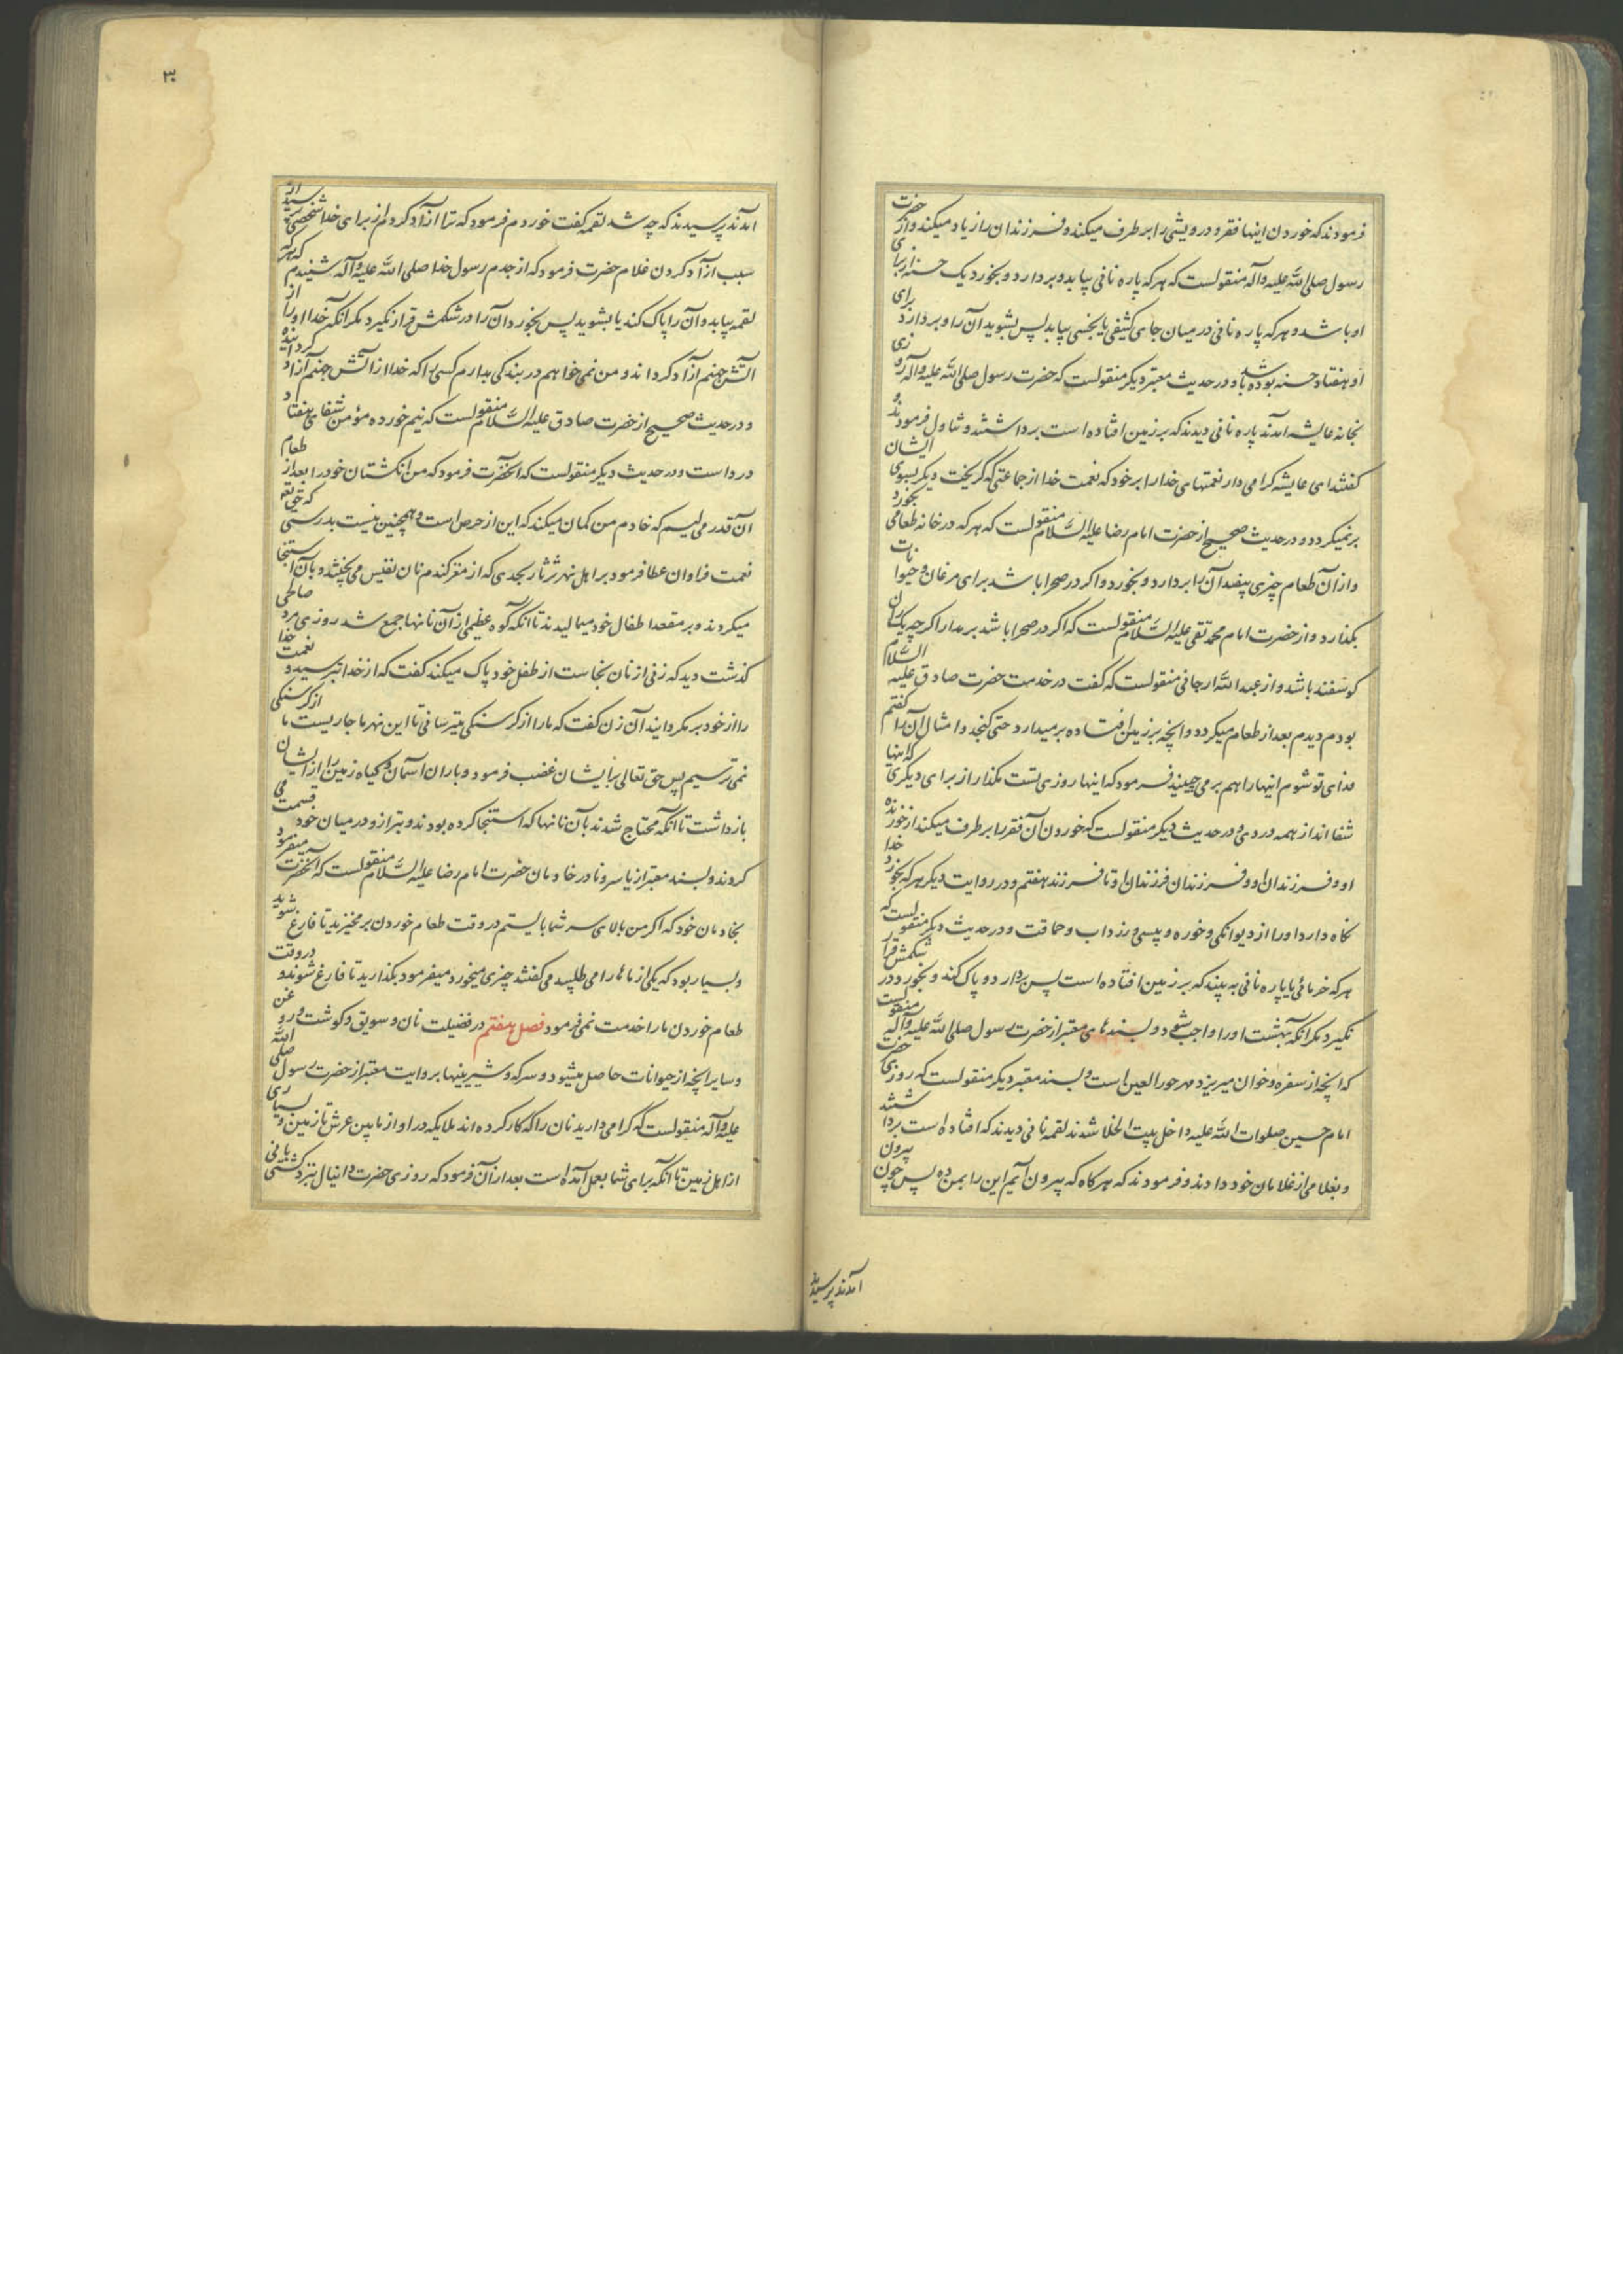 فرمودند که خوردن اینها فقر و درویشی را بر طرف میکند و فرزندان را زیاد میکند و از حضرت
رسول صلی الله علیه و آله منقولست که هر که پاره نانی بیابد و بردارد و بخورد یک حسنه از برای
او باشد و هر که پاره نانی در میان جای کثیفی یا نجسی بیابد پس بشوید آن را و بردارد برای
او هفتاد حسنه بوده باشد و در حدیث معتبر دیگر منقولست که حضرت رسول صلی الله علیه و آله روزی
بخانه عایشه آمدند پاره نانی دیدند که بر زمین افتاده است برداشتند و تناول فرمودند و
کفتند ای عایشه کرامی دار نعمتهای خدا را بر خود که نعمت خدا از جماعتی که کریخت دیکر بسوی ایشان
برنمیکردد و در حدیث صحیح از حضرت امام رضا علیه السلام منقولست که هر که در خانه طعامی بخورد
و از آن طعام چیزی بیفتد آن را بردارد و بخورد و اکر در صحرا باشد برای مرغان و حیوانات
بکذارد و از حضرت امام محمد تقی علیه السلام منقولست که اکر در صحرا باشد برمدار اکر چه یک ران
کوسفند باشد و از عبد الله ارجانی منقولست که کفت در خدمت حضرت صادق علیه السلام
بودم دیدم بعد از طعام میکردد و آنچه بر زمین افتاده برمیدارد حتی کنجد و امثال آن را کفتم
فدای تو شوم اینها را هم برمی چینید فرمود که اینها روزی تست مکذار از برای دیکری که اینها
شفااند از همه دردی و در حدیث دیکر منقولست که خوردن آن فقر را بر طرف میکند از خورنده
او و فرزندان او و فرزندان فرزندان او تا فرزند هفتم و در روایت دیکر هر که بخورد خدا
نکاه دارد او را از دیوانکی و خوره و پیسی و زرداب و حماقت و در حدیث دیکر منقولست که
هر که خرمائی یا پاره نانی به بیند که بر زمین افتاده است پس بردارد و پاک کند و بخورد در شکمش قرار
نکیرد مکر آنکه بهشت او را واجب شود و بسندهای معتبر از حضرت رسول صلی الله علیه و آله منقولست
که آنچه از سفره و خوان میریزد مهر حور العین است و بسند معتبر دیکر منقولست که روزی حضرت
امام حسین صلوات الله علیه داخل بیت الخلا شدند لقمه نانی دیدند که افتاده است برداشتند
و بغلامی از غلامان خود دادند و فرمودند که هر کاه که بیرون آیم این را بمن ده پس چون بیرون
آمدند پرسیدند
۳۰
آمدند پرسیدند که چه شد لقمه کفت خوردم فرمود که ترا آزاد کردم از برای خدا شخصی پرسید از
سبب آزاد کردن غلام حضرت فرمود که از جدم رسول خدا صلی الله علیه و آله شنیدم که هر که
لقمه بیابد و آن را پاک کند یا بشوید پس بخورد آن را در شکمش قرار نکیرد مکر آنکه خدا او را از
آتش جهنم آزاد کرداند و من نمی خواهم در بندکی بدارم کسی را که خدا از آتش جهنم آزاد کردانیده
و در حدیث صحیح از حضرت صادق علیه السلام منقولست که نیم خورده مؤمن شفای هفتاد
درد است و در حدیث دیکر منقولست که آنحضرت فرمود که من انکشتان خود را بعد از طعام
آن قدر می لیسم که خادم من کمان میکند که این از حرص است و همچنین نیست بدرستی که حق تعه
نعمت فراوان عطا فرمود بر اهل نهر ثرثار بحدی که از مغز کندم نان نفیس می پختند و بآن استنجا
میکردند و بر مقعد اطفال خود میمالیدند تا آنکه کوه عظیمی از آن نانها جمع شد روزی مرد صالحی
کذشت دید که زنی از نان نجاست از طفل خود پاک میکند کفت که از خدا بترسید و نعمت خدا
را از خود برمکردانید آن زن کفت که ما را از کرسنکی میترسانی تا این نهر ما جاریست ما از کرسنکی
نمی ترسیم پس حق تعالی بر ایشان غضب فرمود و باران آسمان و کیاه زمین را از ایشان
بازداشت تا آنکه محتاج شدند بآن نانها که استنجا کرده بودند و بترازو در میان خود قسمت می
کردند و بسند معتبر از یاسر و نادر خادمان حضرت امام رضا علیه السلام منقولست که آنحضرت میفرمود
بخادمان خود که اکر من بالای سر شما بایستم در وقت طعام خوردن برمخیزید تا فارغ شوید
و بسیار بود که یکی از ماها را می طلبید می کفتند چیزی میخورد میفرمود بکذارید تا فارغ شوند و در وقت
طعام خوردن ما را خدمت نمی فرمود فصل هفتم در فضیلت نان و سویق و کوشت و روغن
و سایر آنچه از حیوانات حاصل میشود و سرکه و شیرینیها بروایت معتبر از حضرت رسول صلی الله
علیه و آله منقولست که کرامی دارید نان را که کار کرده اند ملایکه در او از مابین عرش تا زمین و بسیاری
از اهل زمین تا آنکه برای شما بعمل آمده است بعد از آن فرمود که روزی حضرت دانیال نزد کشتی بانی